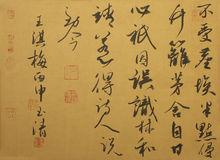 不受塵埃半點侵
竹籬茅舍自甘
心祇因誤識林和
靖惹得詩人說
到今
王淇梅丙申玉清